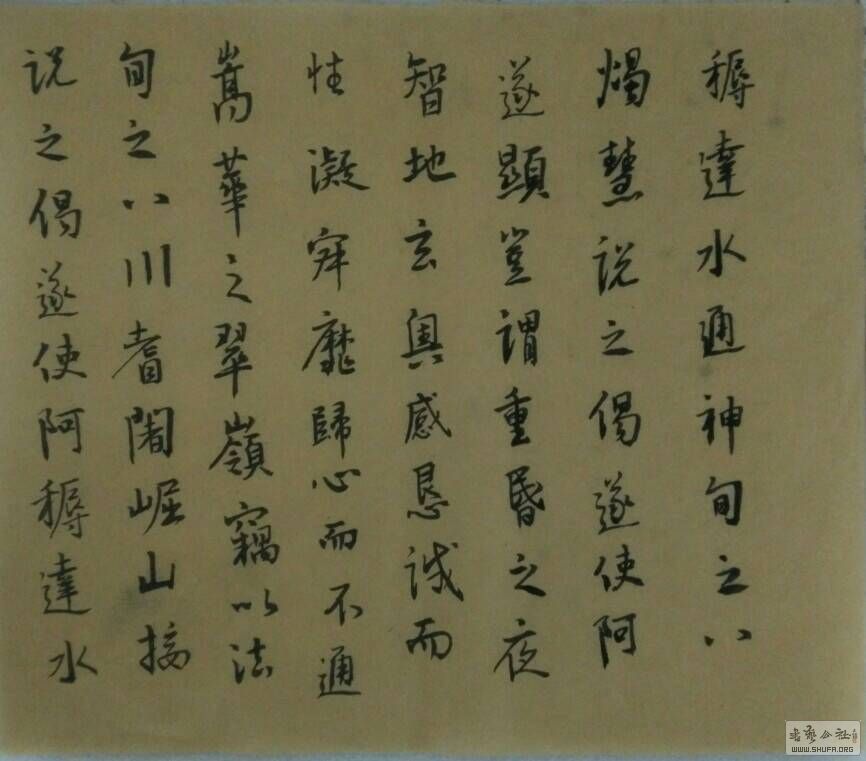 耨達水通神甸之八
燭慧說之偈遂使阿
遂顯豈謂重昏之夜
智地玄奧感懇誠而
性凝寂靡歸心而不通
嵩華之翠嶺竊以法
甸之八川耆闍崛山接
說之偈遂使阿耨達水
書藝公社
WWW.SHUFA.ORG